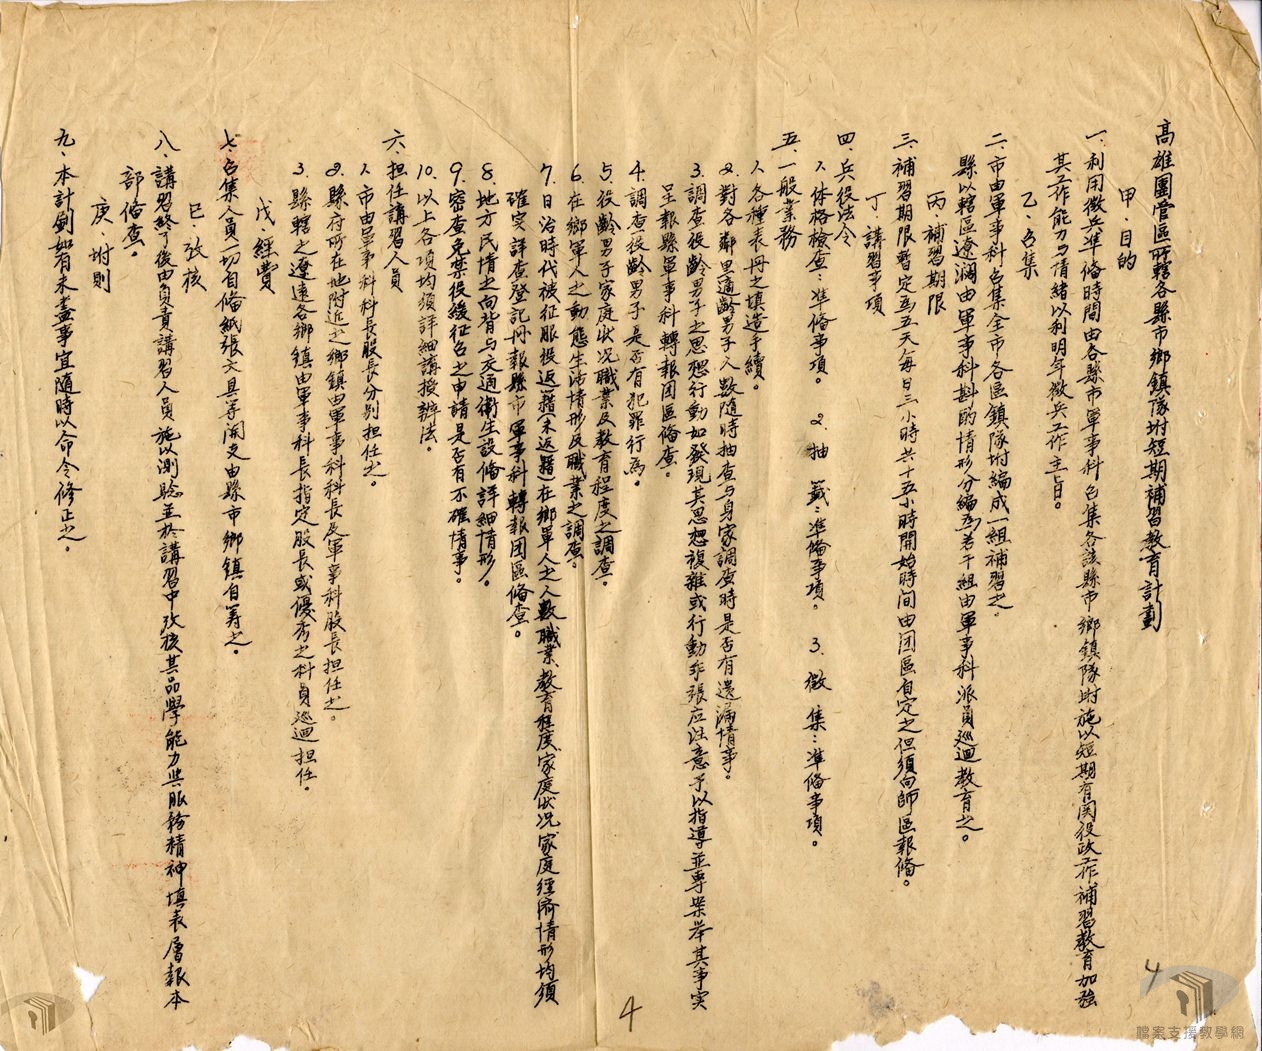 高雄團管區所轄各縣市鄉鎮隊坿短期補習教育計劃
甲、目的
一、利用徵兵準俻時間由各縣市軍事科召集各該縣市鄉鎮隊坿施以短期有関役政工作補習教育加強
其工作能力与情緒以利明年徵兵工作主旨。
乙、召集
二、市由軍事科召集全市各區鎮隊坿編成一組補習之。
縣以轄區遼濶由軍事科斟酌情形分編為若干組由軍事科派員巡迴教育之。
丙、補習期限
三、補習期限暫定為五天每日三小時共十五小時開始時间由团區自定之但須向師區報俻。
丁、講習事項
四、兵役法令
1、体格檢查：準俻事項。 2、抽籤：準俻事項。 3、徵集：準俻事項。
五、一般業務
1、各種表冊之填造手續。
2、對各鄰里適齡男子人數隨時抽查与身家調查時是否有遺漏情事。
3、調查役齡男子之思想行動如發現其思想複雜或行動乖張应注意予以指導並專案举其事实
呈報縣軍事科轉報团區俻查。
4、調查役齡男子是否有犯罪行為。
5、役齡男子家庭状况職業及教育程度之調查。
6、在鄉軍人之動態生活情形及職業之調查。
7、日治時代被征服役返籍(未返籍)在鄉軍人之人數職業、教育程度家庭状况家庭經濟情形均須
確实詳查登記冊報縣市軍事科轉報团區俻查。
8、地方民情之向背与交通衛生設俻詳細情形。
9、密查免禁役緩征召之申請是否有不確情事。
10、以上各項均須詳細講授辦法。
六、担任講習人員
1、市由軍事科科長股長分别担任之。
2、縣府所在地附近之鄉鎮由軍事科科長及軍事科股長担任之。
3、縣轄之遼遠各鄉鎮由軍事科長指定股長或優秀之科員巡迴担任。
戊、經費
七、召集人員一切自俻紙張文具等開支由縣市鄉鎮自筹之。
巳、攷核
八、講習終了後由負責講習人員施以測驗並於講習中攷核其品學能力與服務精神填表層報本
部俻查。
庚、坿則
九、本計劃如有未盡事宜隨時以命令修正之。
4
4
檔案支援教學網